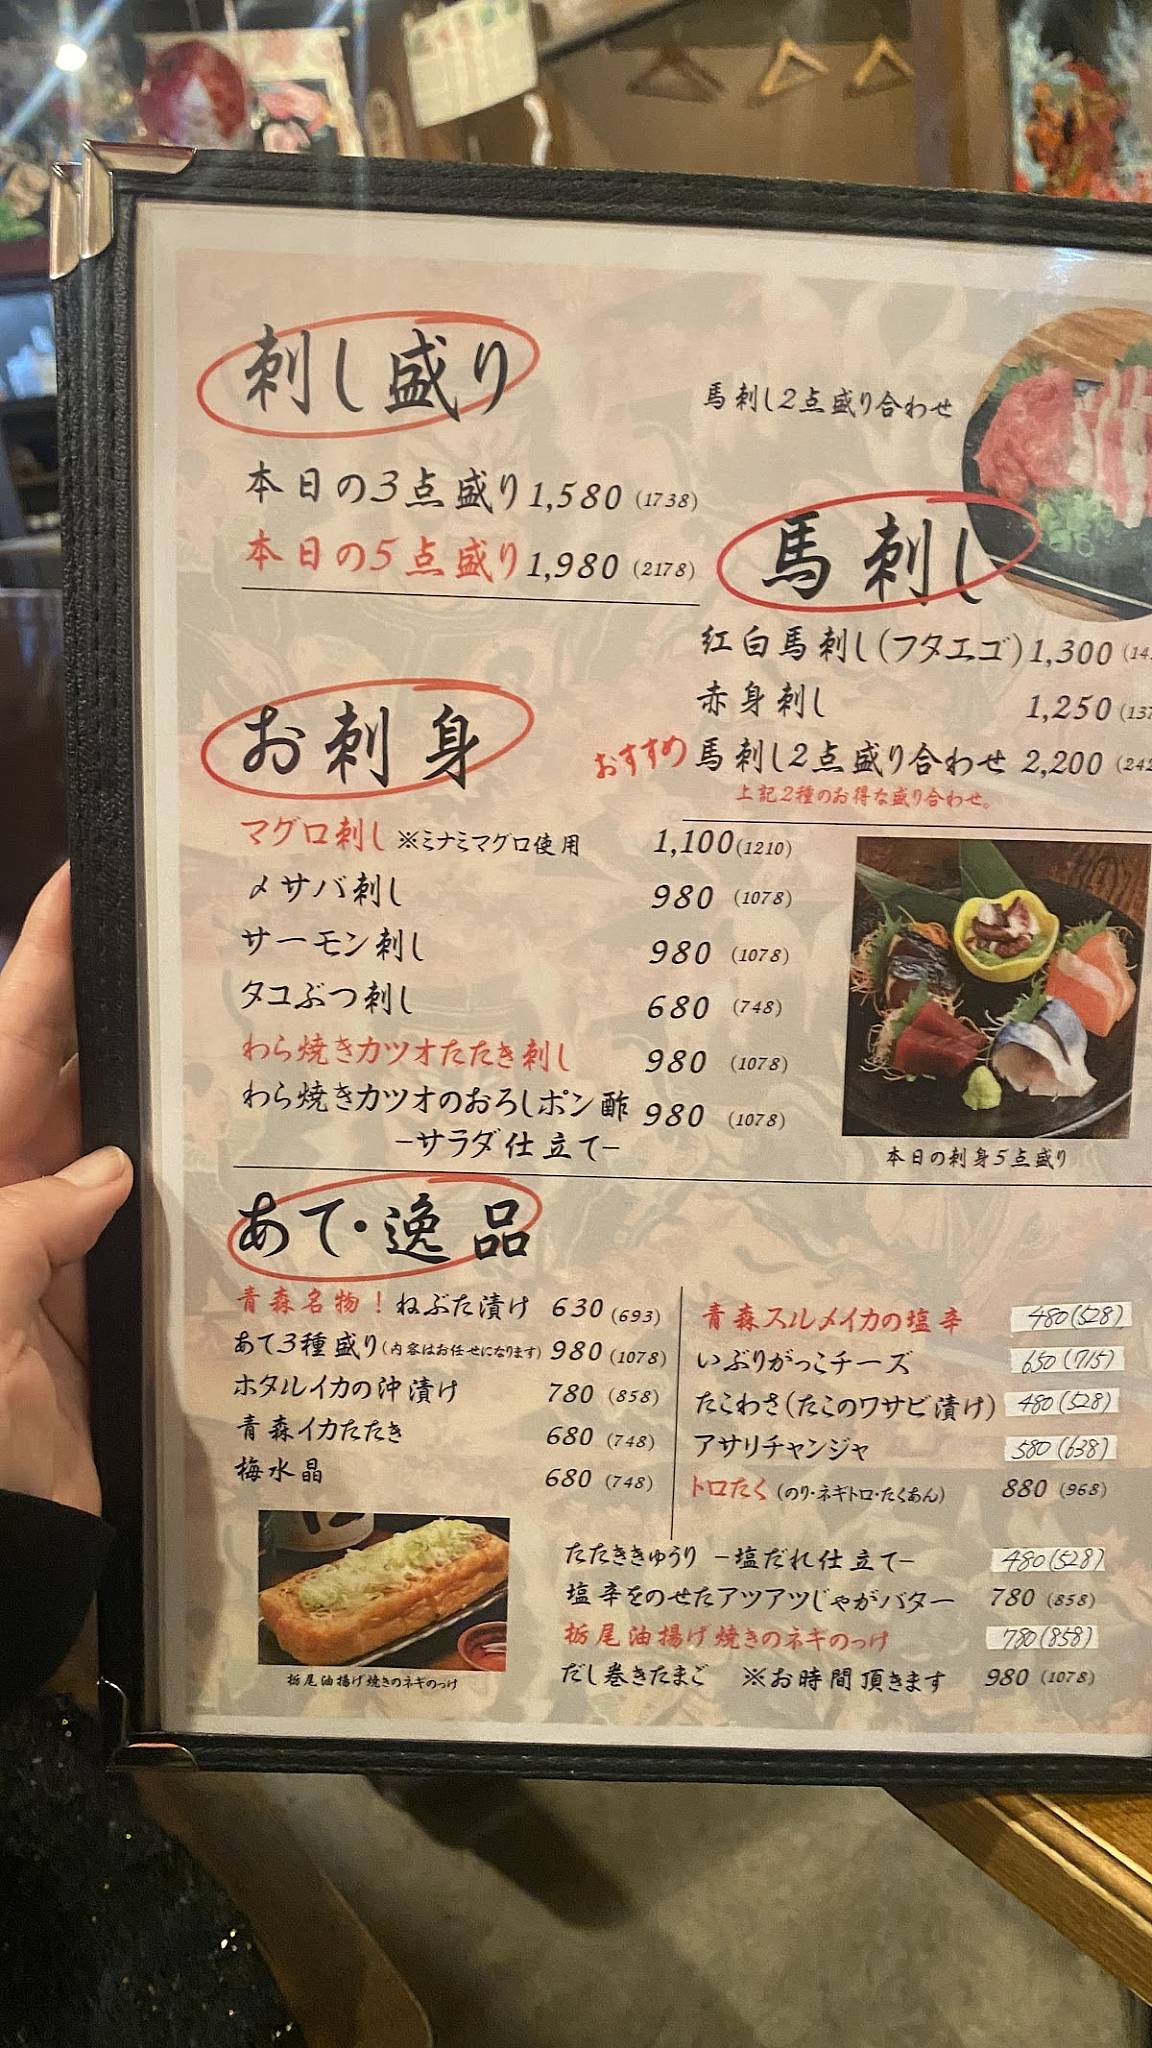 刺し盛り
本日の3点盛り 1,580 (1738)
本日の5点盛り 1,980 (2178)
馬刺し2点盛り合わせ
馬刺し
紅白馬刺し(フタエゴ) 1,300 (14
赤身刺し 1,250 (137
おすすめ 馬刺し2点盛り合わせ 2,200 (242
上記2種のお得な盛り合わせ。
お刺身
マグロ刺し ※ミナミマグロ使用 1,100 (1210)
〆サバ刺し 980 (1078)
サーモン刺し 980 (1078)
タコぶつ刺し 680 (748)
わら焼きカツオたたき刺し 980 (1078)
わら焼きカツオのおろしポン酢 980 (1078)
-サラダ仕立て-
本日の刺身5点盛り
あて・逸品
青森名物！ねぶた漬け 630 (693)
あて3種盛り(内容はお任せになります) 980 (1078)
ホタルイカの沖漬け 780 (858)
青森イカたたき 680 (748)
梅水晶 680 (748)
青森スルメイカの塩辛 480(528)
いぶりがっこチーズ 650(715)
たこわさ(たこのワサビ漬け) 480(528)
アサリチャンジャ 580(638)
トロたく(のり・ネギトロ・たくあん) 880 (968)
たたききゅうり -塩だれ仕立て- 480(528)
塩辛をのせたアツアツじゃがバター 780 (858)
栃尾油揚げ焼きのネギのっけ 780(858)
だし巻きたまご ※お時間頂きます 980 (1078)
栃尾油揚げ焼きのネギのっけ